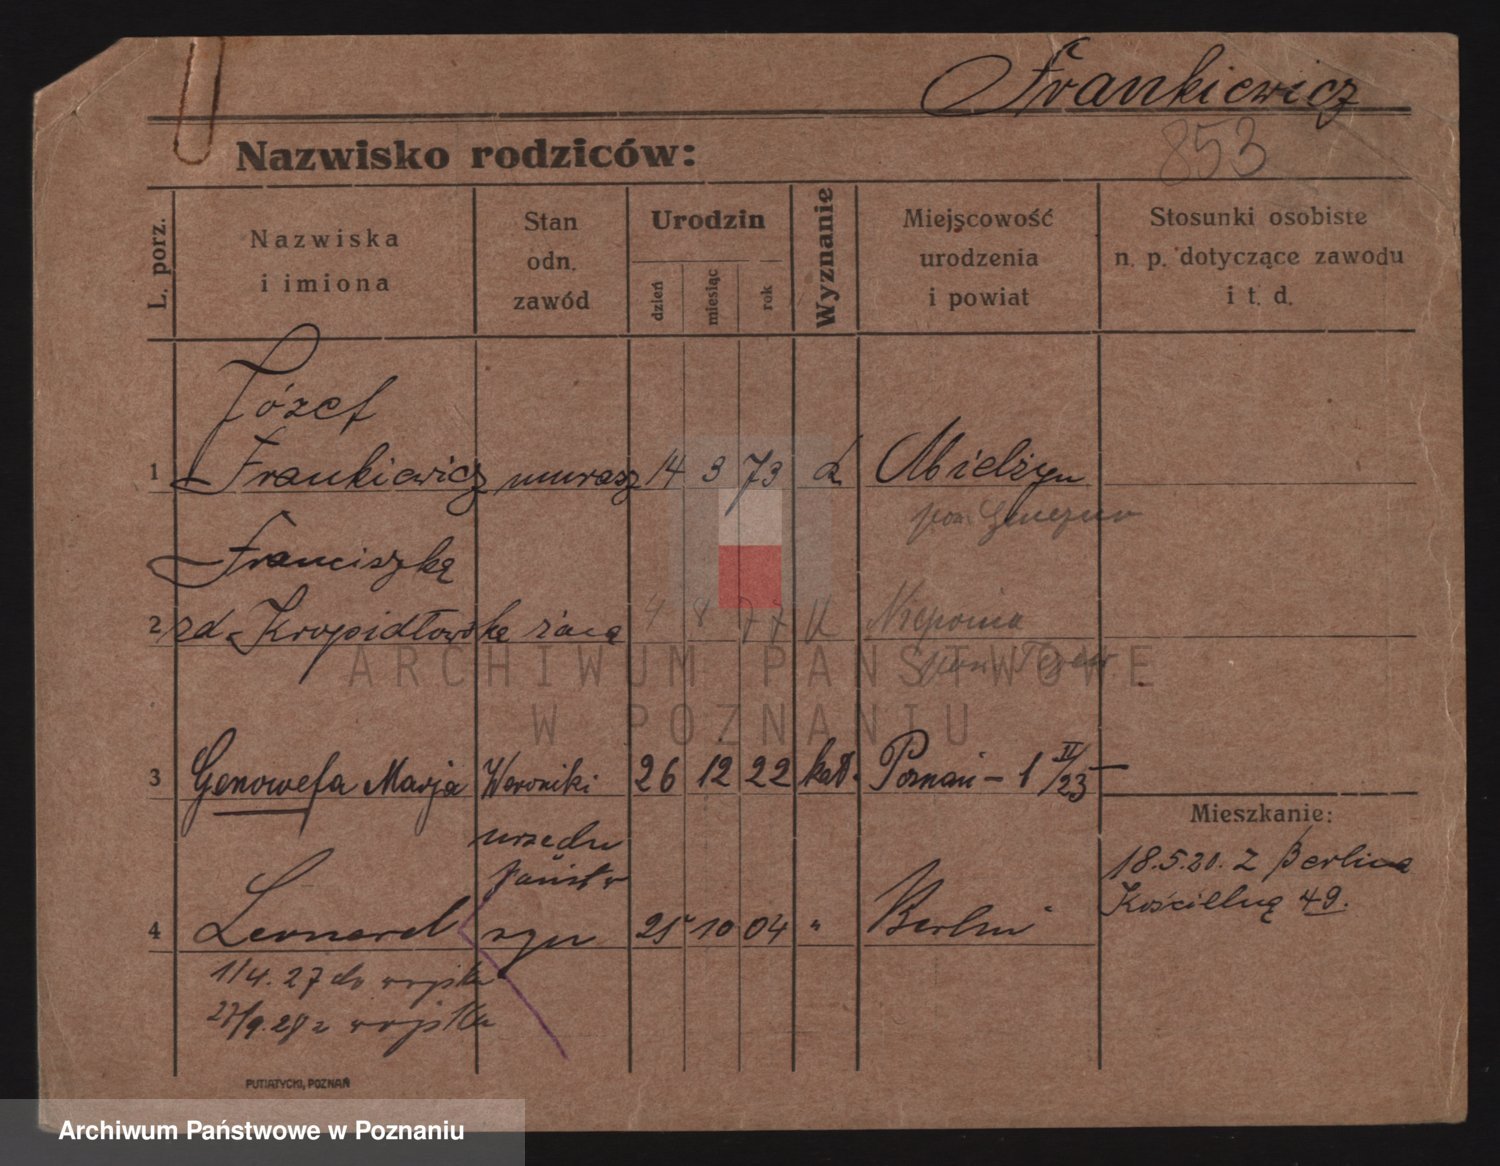 Frankiewicz
853
Nazwisko rodziców:
L. porz.
Nazwiska
i imiona
Stan
odn.
zawód
Urodzin
dzień
miesiąc
rok
Wyznanie
Miejscowość
urodzenia
i powiat
Stosunki osobiste
n. p. dotyczące zawodu
i t. d.
Józef
1 Frankiewicz murarz 14 3 73 Mielżyn
pow.
Franciszka
2 zd. Kropidłowska żona 4 8 77 K
pow.
ARCHIWUM PAŃSTWOWE
W POZNANIU
3 Genowefa Marja Weroniki 26 12 22 kat. Poznań – 1 IV/23 –
Mieszkanie:
18.5.20. z Berlina
Kościelną 49.
urzędn
państw
4 Leonard 25 10 04 " Berlin
1/4. 27 do wojska
27/9. 28 z wojska
PUTIATYCKI, POZNAŃ
Archiwum Państwowe w Poznaniu